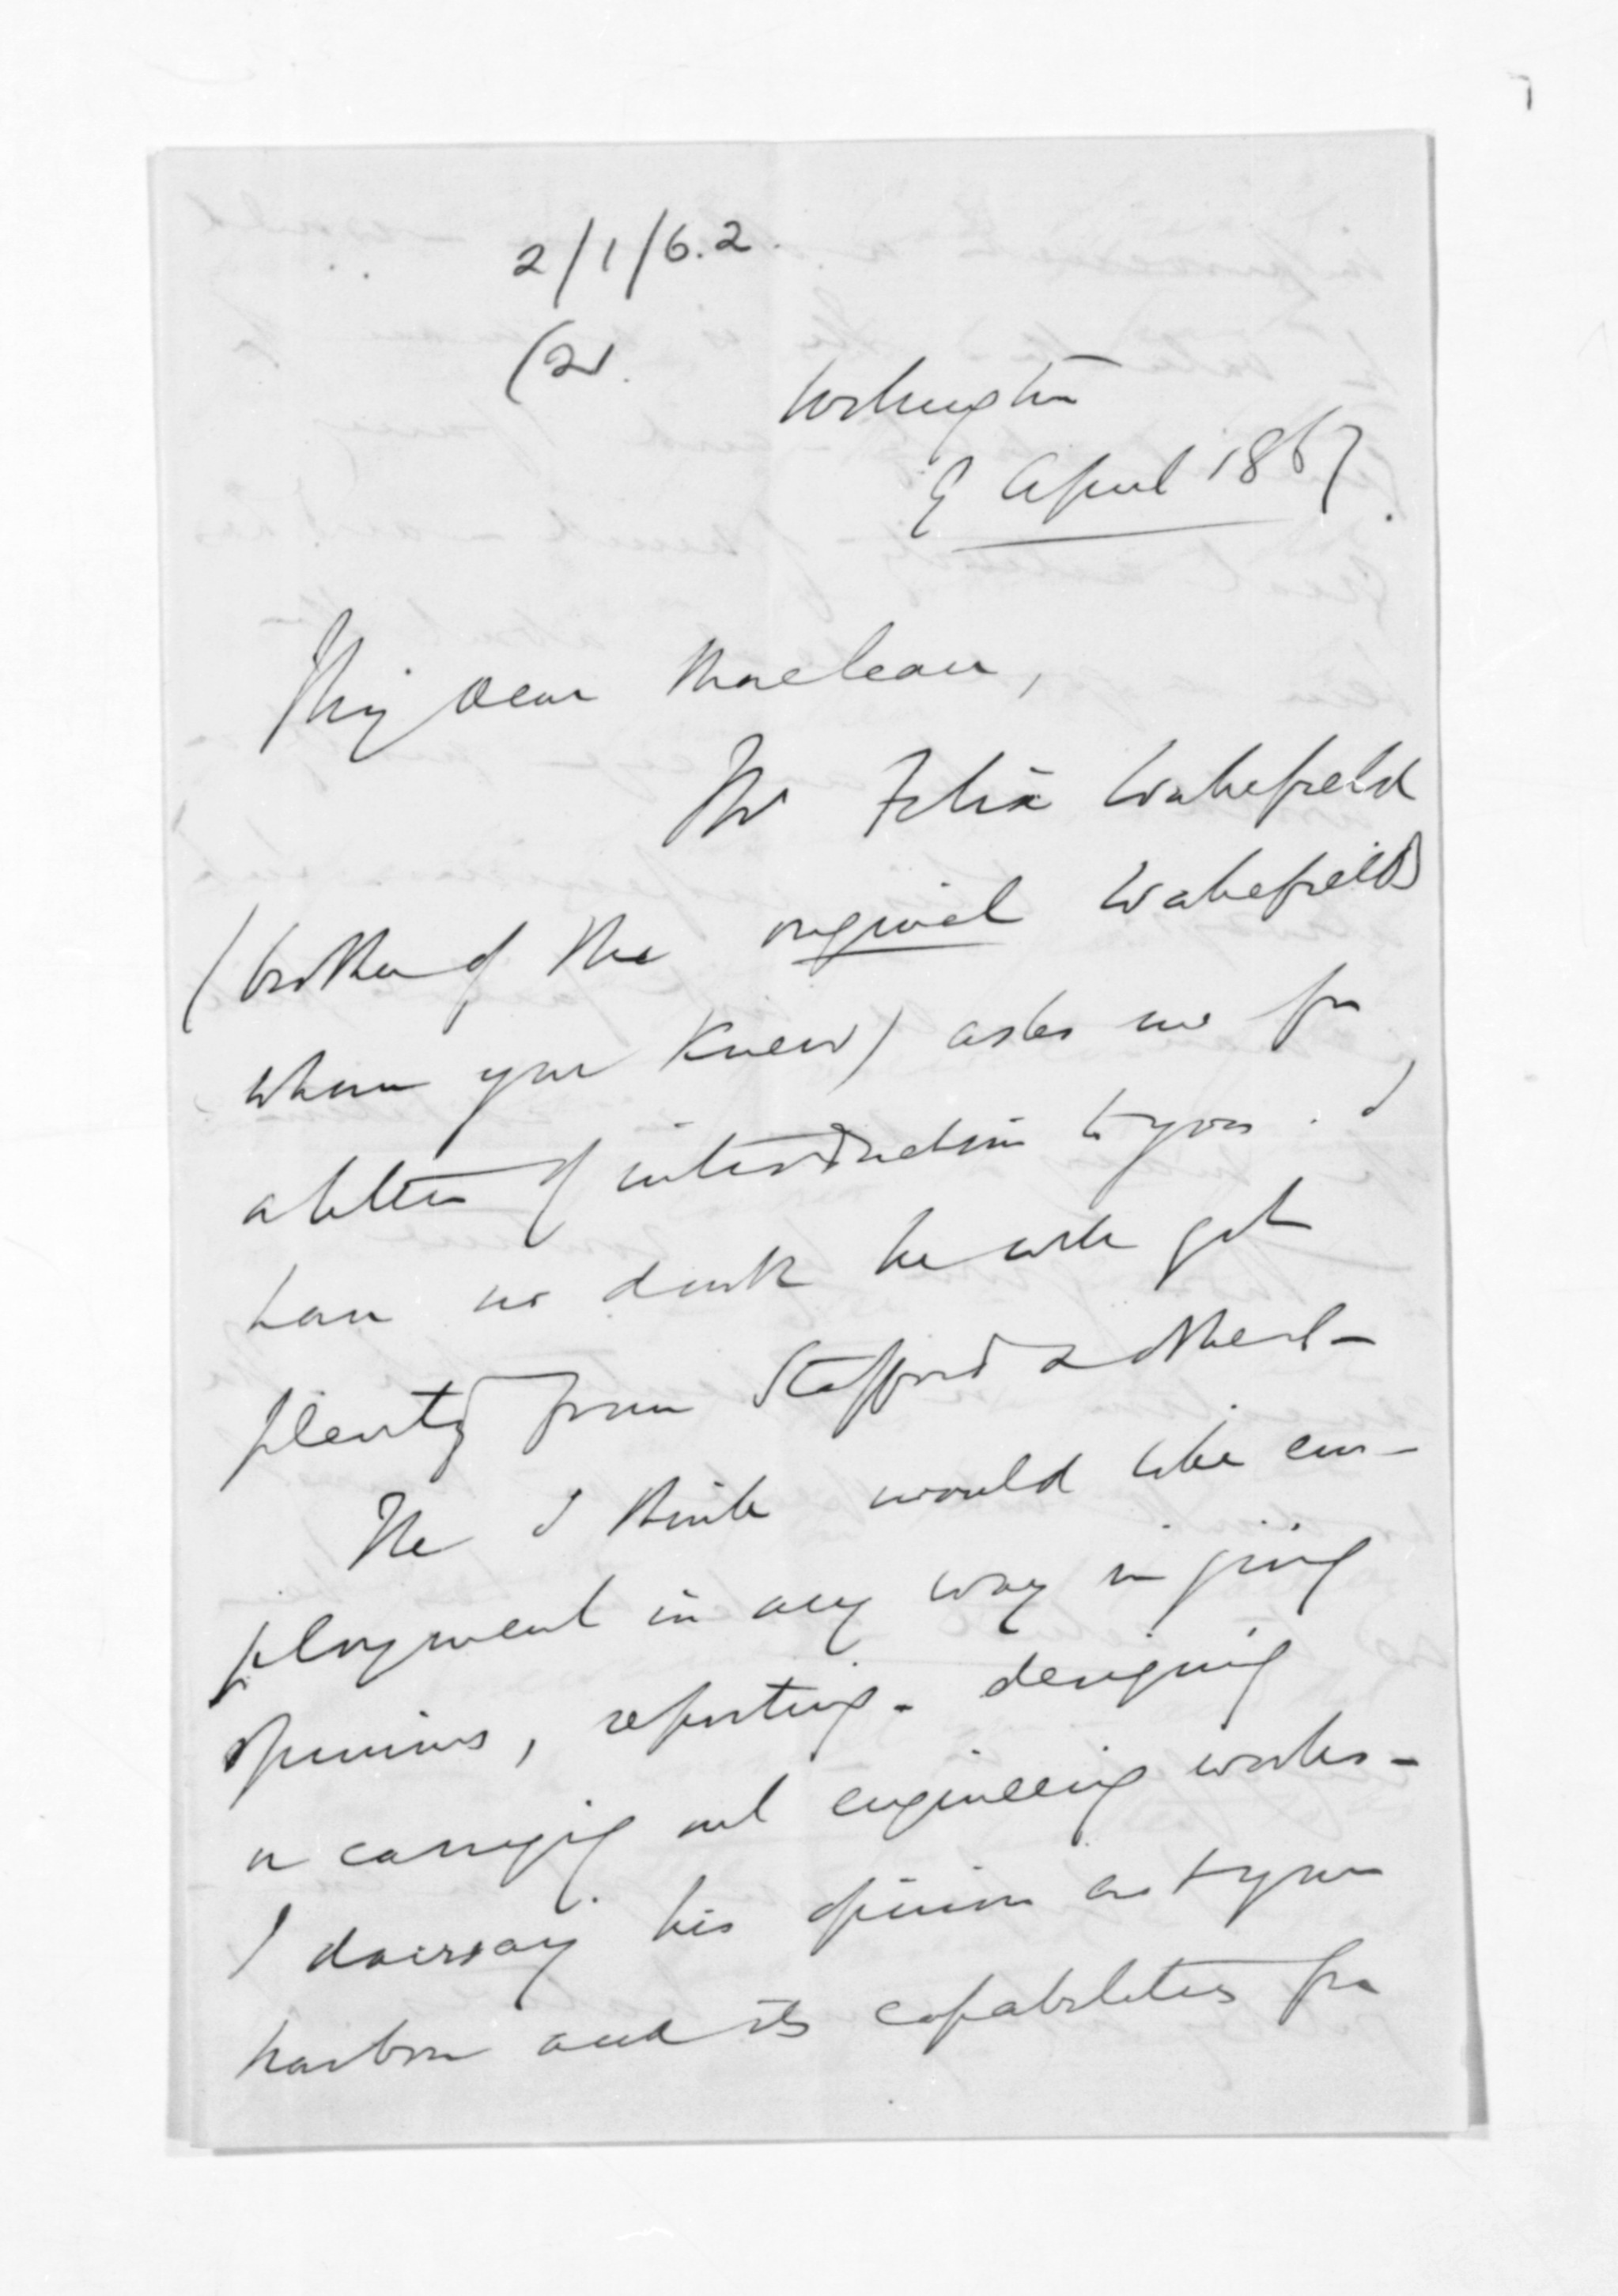 2/1/62.
(2).
Wellington
9 April 1867.
My dear Maclean,
Mr Felix Wakefield
(brother of the original Wakefields
whom you knew) asks me for
a letter of introduction to you. I
have no doubt he will get
plenty from Stafford & others -
He I think would like em-
ployment in any way in giving
opinions, reporting - designing
or carrying out engineering works -
I daresay his opinion as to your
harbour and its capabilities for